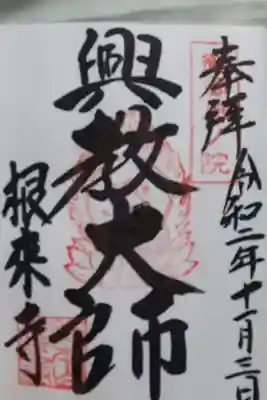 奉拝
令和二年十一月三日
興教大師
根来寺